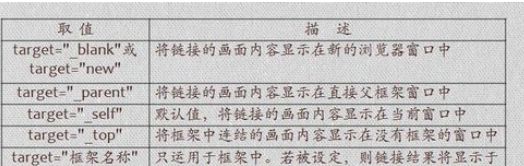 取 值 描 述
target="_blank"或 将链接的画面内容显示在新的浏览器窗口中
target="new"
target="_parent" 将链接的画面内容显示在直接父框架窗口中
target="_self" 默认值，将链接的画面内容显示在当前窗口中
target="_top" 将框架中连结的画面内容显示在没有框架的窗口中
target="框架名称" 只运用于框架中。若被设定，则链接结果将显示于